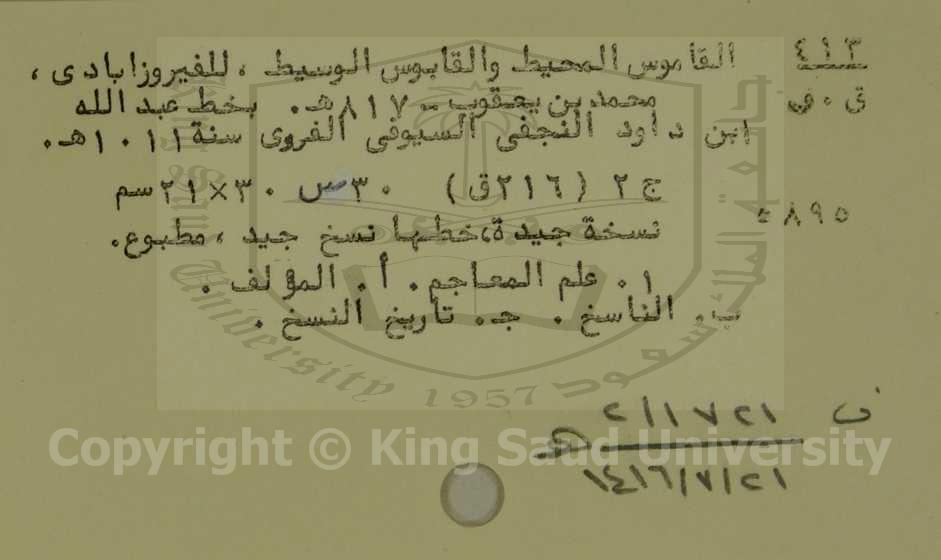 ٤١٣ القاموس المحيط والقابوس الوسيط ، للفيروزابادى ،
ق ٠ ف محمد بن يعقوب - ٨١٧هـ. بخط عبد الله
ابن داود النجفي السيوفي الغروى سنة ١٠١١هـ.
ج ٢ (٢١٦ق) ٣٠س ٣٠×٢١سم
٨٩٥ =
نسخة جيدة، خطها نسخ جيد ، مطبوع.
١. علم المعاجم. أ. المؤلف .
ب. الناسخ . جـ. تاريخ النسخ .
ف ٢/١٧٢١
١٤١٦/٧/٢١هـ
University 1957
Copyright © King Saud University